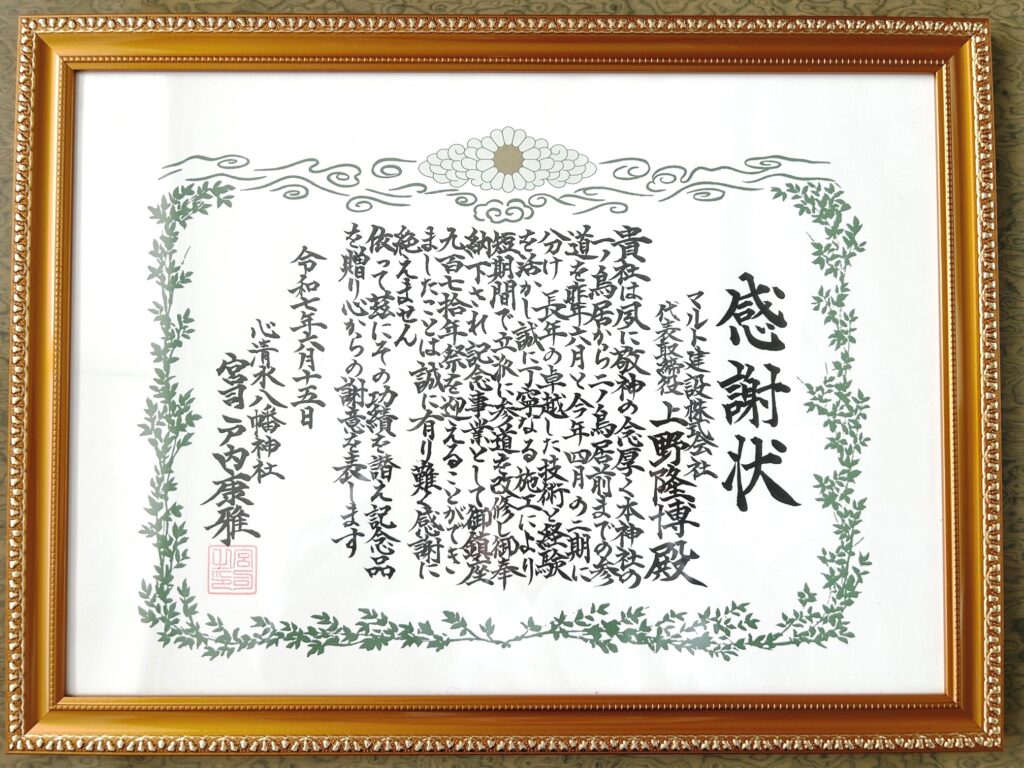 感謝状
マルト建設株式会社
代表取締役 上野隆博殿
貴社は夙に敬神の念厚く本神社の
一ノ鳥居から二ノ鳥居前までの参
道を昨年六月と今年四月の二期に
分け 長年の卓越した技術 経験
を活かし誠に丁寧なる施工により
短期間で立派に参道を改修し御奉
納下され 記念事業として御鎮座
九百七拾年祭を迎えることができ
ましたことは誠に有り難く感謝に
絶えません
依って茲にその功績を讃え記念品
を贈り心からの謝意を表します
令和七年六月十五日
心清水八幡神社
宮司 戸内康雅
宮司之印